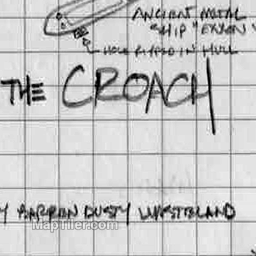 ANCIENT METAL
SHIP "EXXON V
HOLE RIPPED IN HULL
THE CROACH
Y BARREN DUSTY WASTELAND
MapTiler.com